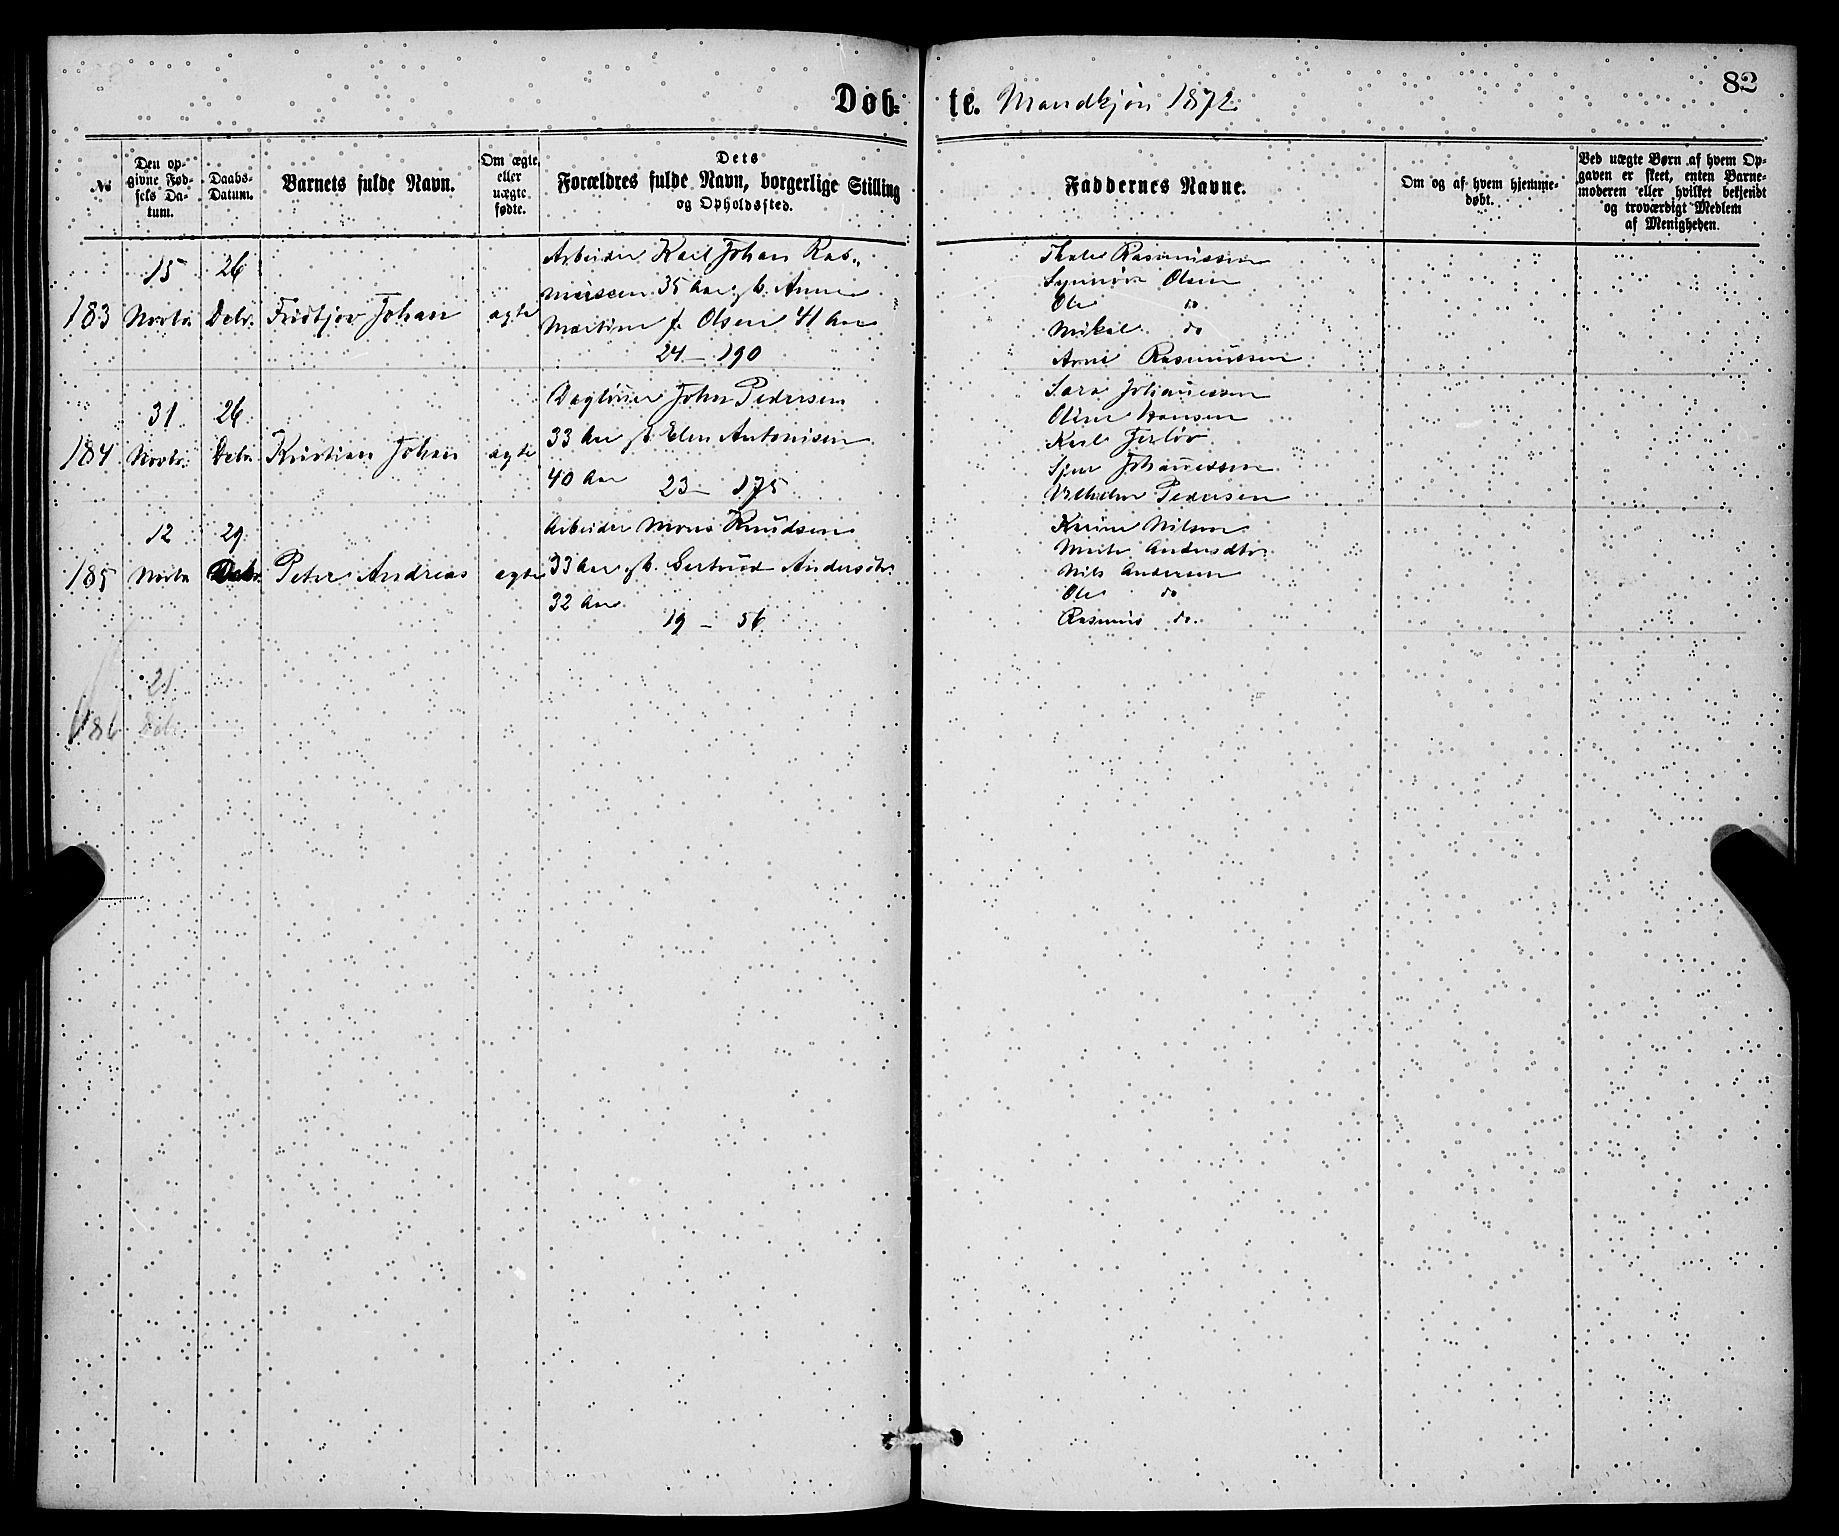 82
Døb-
te. Mandkjøn 1872
№
Den op-
givne Fød-
sels Da-
tum.
Daabs-
Datum.
Barnets fulde Navn.
Om ægte
eller
uægte
fødte.
Dets
Forældres fulde Navn, borgerlige Stilling
og Opholdssted.
Faddernes Navne.
Om og af hvem hjemme-
døbt.
Ved uægte Børn af hvem Op-
gaven er skeet, enten Barne-
moderen eller hvilket bekjendt
og troværdigt Medlem
af Menigheden.
183
15
Novbr.
26
Debr.
Fridtjov Johan
ægte
Arbeider Karl Johan Ras-
mussen 35 Aar gb. Anne
Martine f. Olsen 41 Aar
24 – 190
Rasmussen
Synnöve Olsen
Ole do
Mikal do
Arne Rasmussen
184
31
Novbr.
26
Debr.
Kristian Johan
ægte
Daglönner Johan Pedersen
33 Aar gb. Elen Antonisen
40 Aar
23 – 175
Sara Johannessen
Oline Hansen
Karl
Johannessen
Vilhelm Pedersen
185
12
Novbr
29
Debr.
Peter Andreas
ægte
Arbeider Mons Knudsen
33 Aar gb. Gertrud Andersdtr.
32 Aar
19 – 56
Karine Nilsen
Andersdtr.
Nils Andersen
Ole do
Rasmus do.
186
21
Debr.